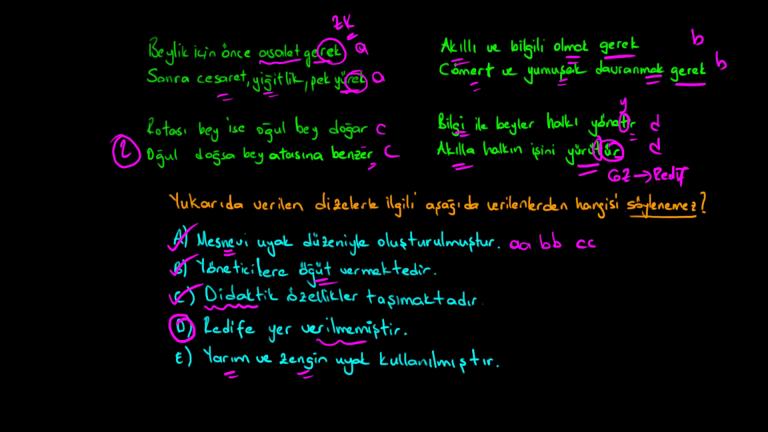 ZK
Beylik için önce asalet gerek a
Sonra cesaret, yiğitlik, pek yürek a
Akıllı ve bilgili olmak gerek b
Cömert ve yumuşak davranmak gerek b
2
Rotası bey ise oğul bey doğar c
Oğul doğsa bey atasına benzer c
y
Bilgi ile beyler halkı yönetir d
Akılla halkın işini yürütür d
GZ → Redif
Yukarıda verilen dizelerle ilgili aşağıda verilenlerden hangisi söylenemez?
A) Mesnevi uyak düzeniyle oluşturulmuştur. aa bb cc
B) Yöneticilere öğüt vermektedir.
C) Didaktik özellikler taşımaktadır.
D) Redife yer verilmemiştir.
E) Yarım ve zengin uyak kullanılmıştır.